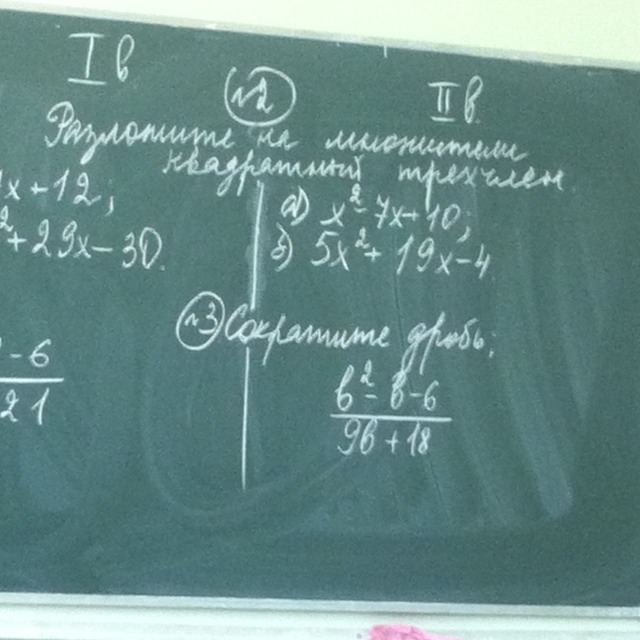 I в
№2
II в.
Разложите на множители
квадратный трехчлен.
x + 12;
+ 29x - 30.
а) x² - 7x + 10;
б) 5x² + 19x - 4
№3 Сократите дробь:
- 6
21
b² - b - 6
9b + 18